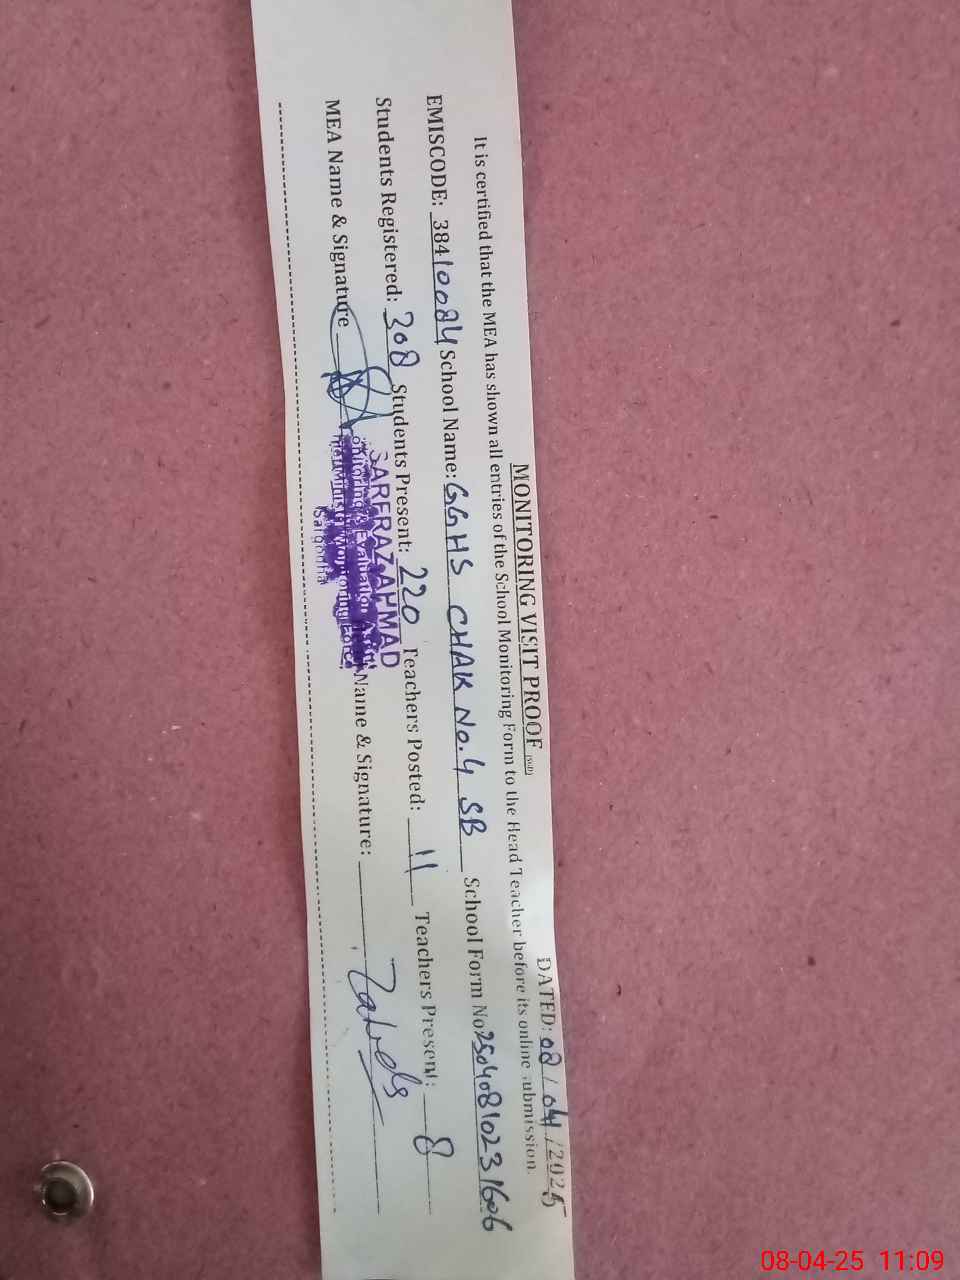 MONITORING VISIT PROOF (SED) DATED: 08/04/2025
It is certified that the MEA has shown all entries of the School Monitoring Form to the Head Teacher before its online submission.
EMISCODE: 38410084 School Name: GGHS CHAK No. 4 SB School Form No: 25040810231606
Students Registered: 308 Students Present: 220 Teachers Posted: 11 Teachers Present: 8
MEA Name & Signature Name & Signature:
SARFRAZ AHMAD
Monitoring & Evaluation
Chief Minister Monitoring Force,
Sargodha
08-04-25 11:09